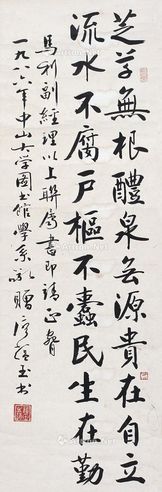 芝草無根醴泉無源貴在自立
流水不腐戶樞不蠹民生在勤
馬利副經理以上聯傳書即請正腕
一九八六年中山大学图书館學系敬贈